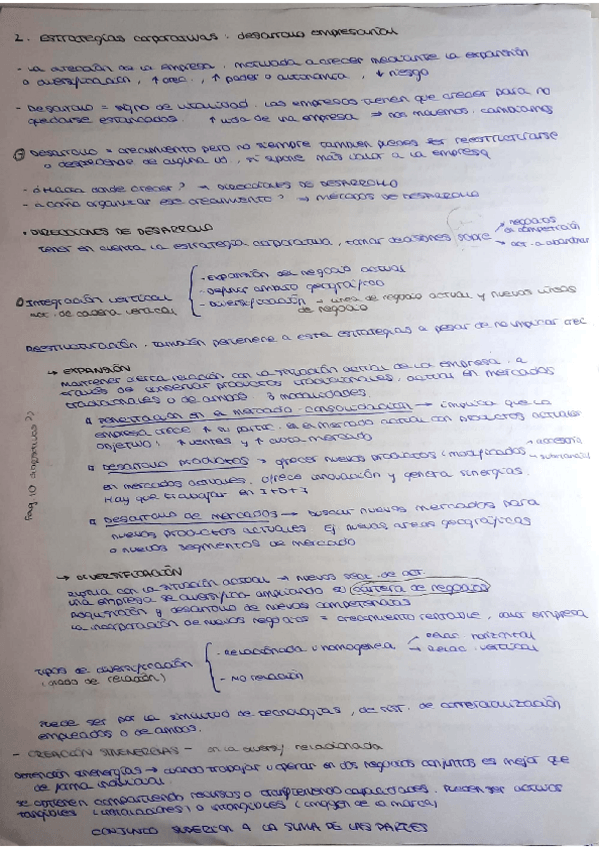 2. Estrategias corporativas: desarrollo empresarial
- La dirección de la empresa, motivada a crecer mediante la expansión
o diversificación, ↑ crec., ↑ poder o autonomía, ↓ riesgo
- Desarrollo = signo de vitalidad. Las empresas tienen que crecer para no
quedarse estancadas. ↑ vida de una empresa ⇒ nos movemos, cambiamos
Desarrollo = crecimiento pero no siempre también puedes ser reestructurarse
o desprenderse de alguna, si supone más valor a la empresa
- ¿Hacia donde crecer? → DIRECCIONES DE DESARROLLO
- ¿Cómo organizar ese crecimiento? → MÉTODOS DE DESARROLLO
• DIRECCIONES DE DESARROLLO
Tener en cuenta la estrategia corporativa, tomar decisiones sobre
negocios en competición
act. a abandonar
- Expansión del negocio actual
- Definir ámbito geográfico
Integración vertical
- Diversificación → línea de negocio actual y nuevas líneas
de negocio
Reestructuración, también pertenece a esta estrategias a pesar de no implicar crec.
↳ EXPANSIÓN
Mantener cierta relación con la situación actual de la empresa, a
través de conservar productos tradicionales, actual en mercados
tradicionales o de ambos. 3 modalidades.
Penetración en el mercado - consolidación → implica que la
empresa crece en el mercado actual con productos actuales
objetivo: ↑ ventas y ↑ cuota mercado
Pág 10 diapositivas
Desarrollo productos → ofrecer nuevos productos (modificados)
→ accesoria
en mercados actuales. Ofrece innovación y genera sinergias.
Hay que trabajar en I+D+I
Desarrollo de mercados → buscar nuevos mercados para
nuevos productos actuales Ej nuevas areas geográficas
o nuevos segmentos de mercado
→ DIVERSIFICACIÓN
Ruptura con la situación actual → nuevos de act.
una empresa se diversifica ampliando su cartera de negocios
Adquisición y desarrollo de nuevas competencias
La incorporación de nuevos negocios = crecimiento rentable, valor empresa
- Relacionada u homogénea
→ Relac. horizontal
→ Relac. vertical
Tipos de diversificación
(grado de relación)
- NO relación
Puede ser por la similitud de tecnologías, de dist., de comercialización
empleados o de ambos.
- CREACIÓN SINENERGIAS - en la diversif relacionada
Obtención sinenergias → cuando trabajar u operar en dos negocios conjuntos es mejor que
de forma individual.
Se obtienen compartiendo recursos o transfiriendo capacidades. Pueden ser activos
tangibles o intangibles (imagen de la marca)
CONJUNTO SUPERIOR A LA SUMA DE LAS PARTES